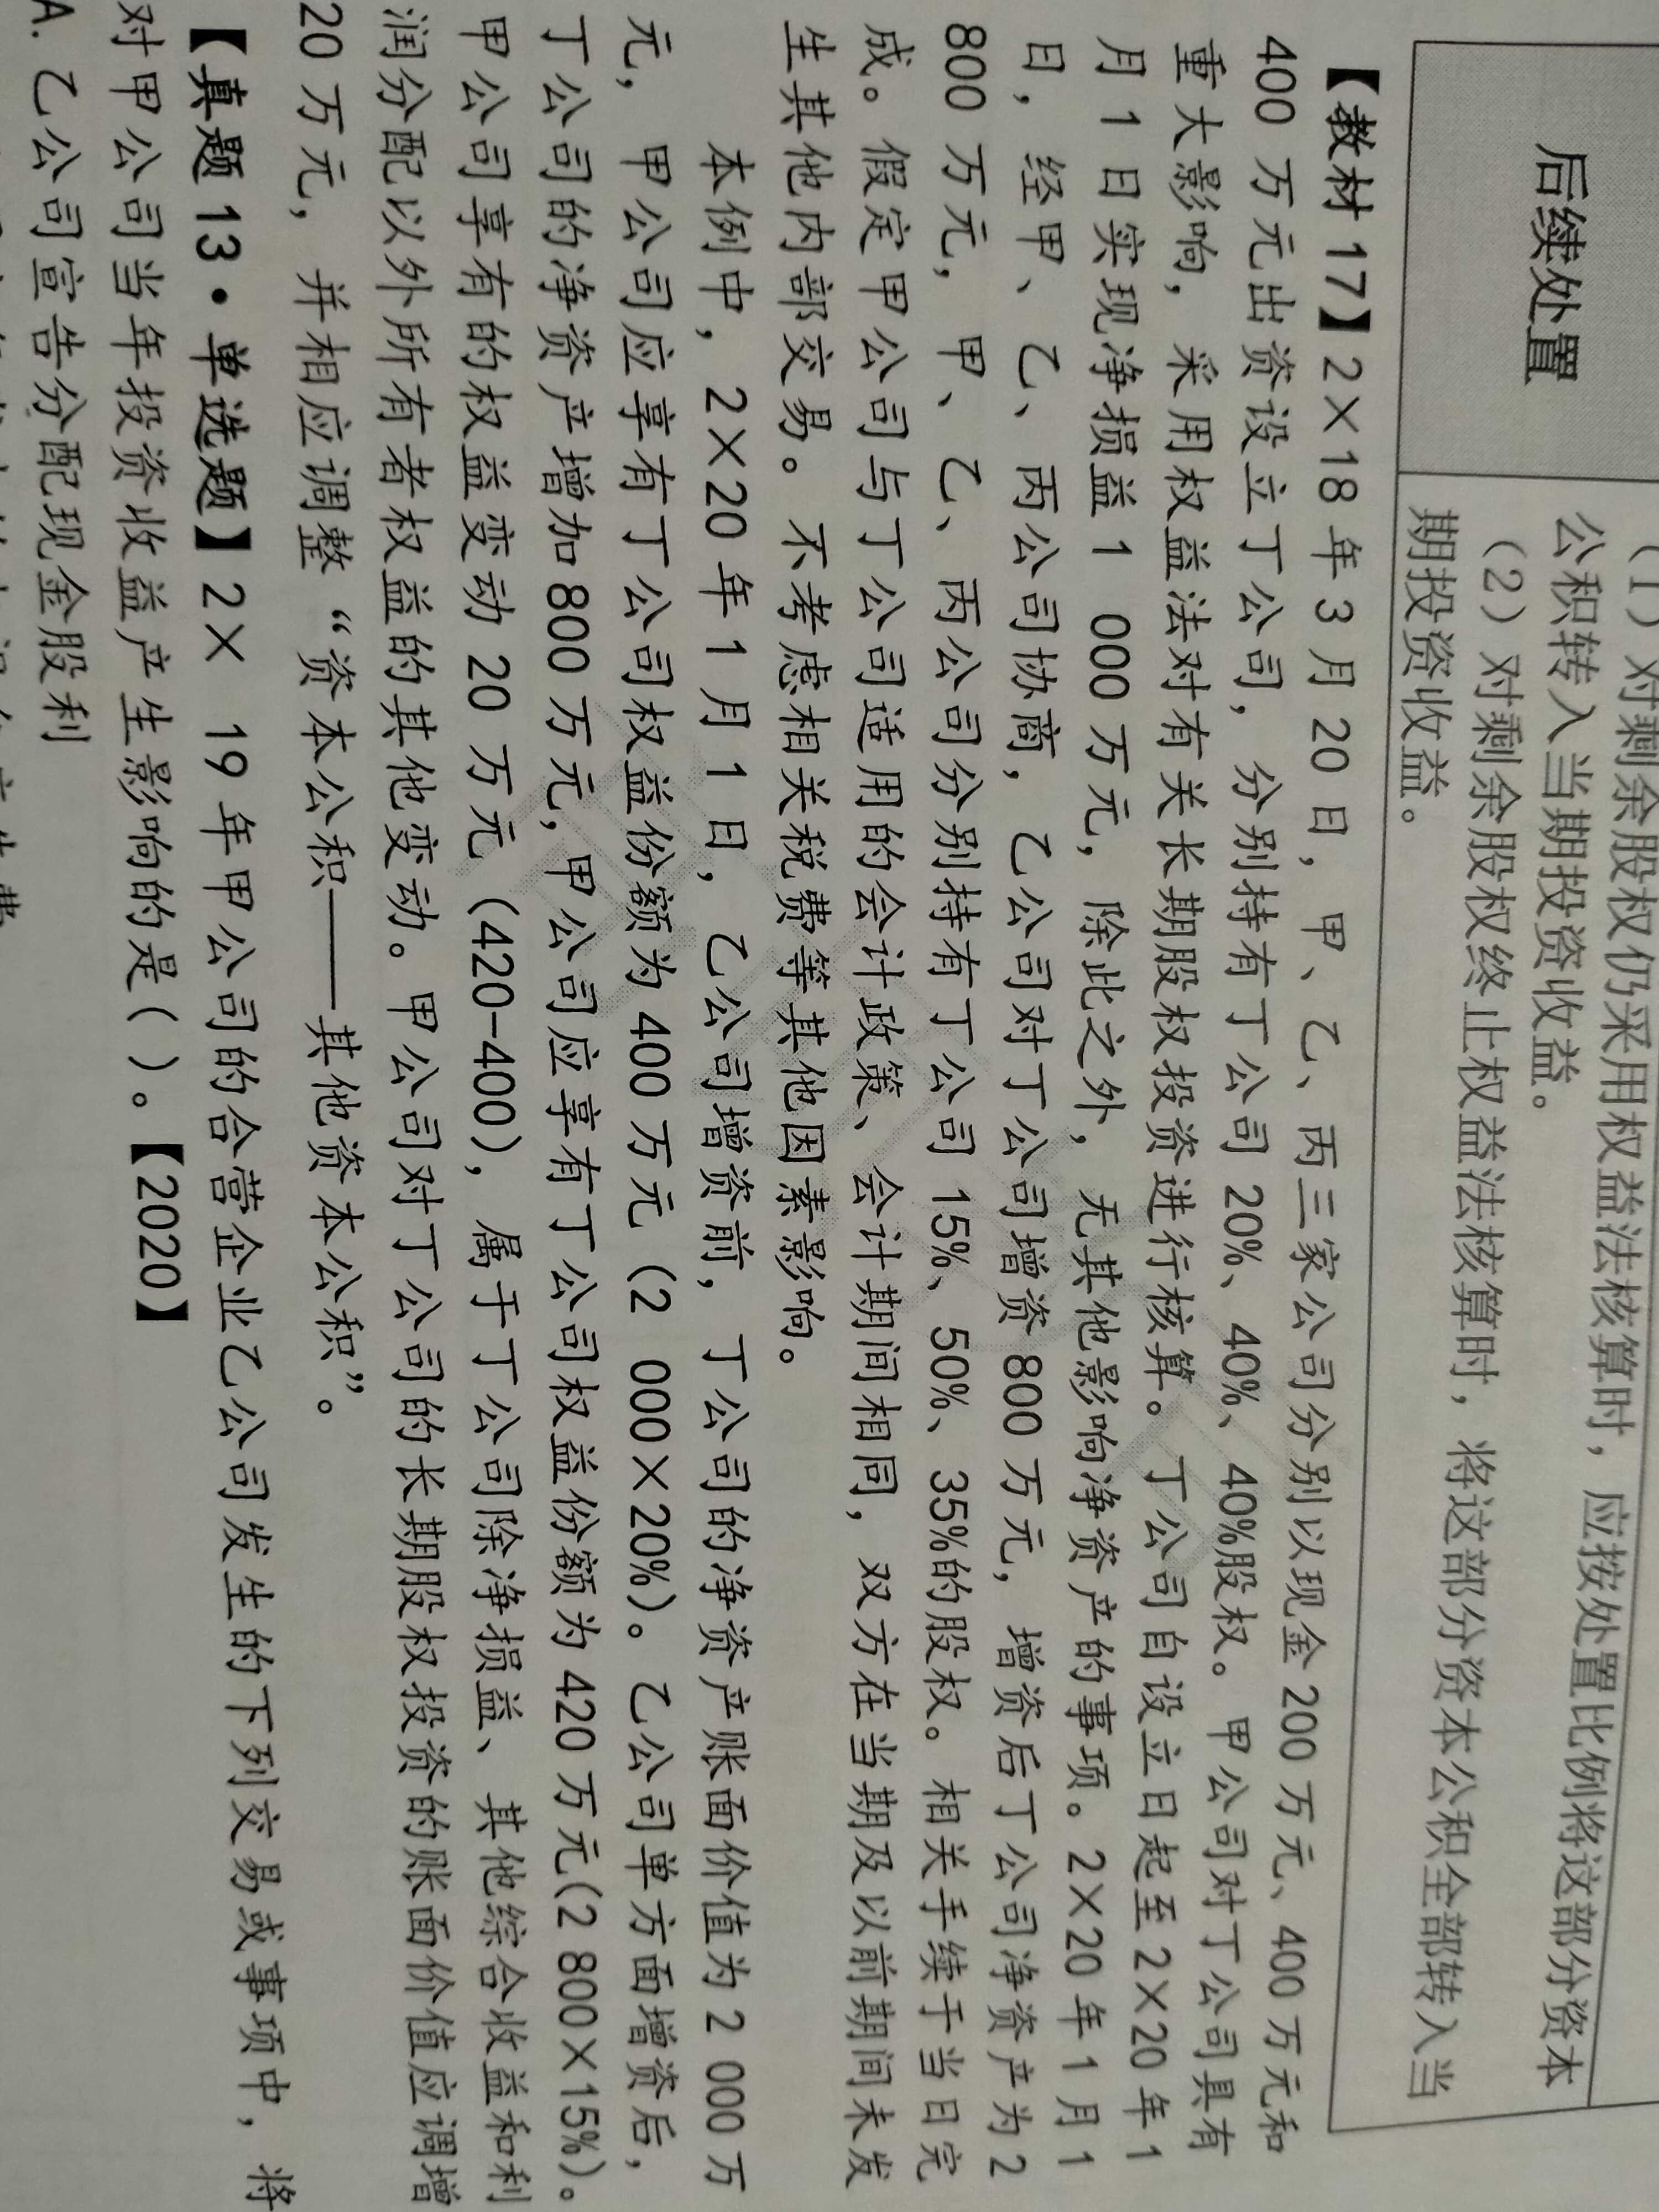 后续处置
（1）对剩余股权仍采用权益法核算时，应按处置比例将这部分资本
公积转入当期投资收益。
（2）对剩余股权终止权益法核算时，将这部分资本公积全部转入当
期投资收益。
【教材 17】2×18 年 3 月 20 日，甲、乙、丙三家公司分别以现金 200 万元、400 万元和
400 万元出资设立丁公司，分别持有丁公司 20%、40%、40%股权。甲公司对丁公司具有
重大影响，采用权益法对有关长期股权投资进行核算。丁公司自设立日起至 2×20 年 1
月 1 日实现净损益 1 000 万元，除此之外，无其他影响净资产的事项。2×20 年 1 月 1
日，经甲、乙、丙公司协商，乙公司对丁公司增资 800 万元，增资后丁公司净资产为 2
800 万元，甲、乙、丙公司分别持有丁公司 15%、50%、35%的股权。相关手续于当日完
成。假定甲公司与丁公司适用的会计政策、会计期间相同，双方在当期及以前期间未发
生其他内部交易。不考虑相关税费等其他因素影响。
本例中，2×20 年 1 月 1 日，乙公司增资前，丁公司的净资产账面价值为 2 000 万
元，甲公司应享有丁公司权益份额为 400 万元（2 000×20%）。乙公司单方面增资后，
丁公司的净资产增加 800 万元，甲公司应享有丁公司权益份额为 420 万元（2 800×15%）。
甲公司享有的权益变动 20 万元（420-400），属于丁公司除净损益、其他综合收益和利
润分配以外所有者权益的其他变动。甲公司对丁公司的长期股权投资的账面价值应调增
20 万元，并相应调整“资本公积——其他资本公积”。
【真题 13·单选题】2× 19 年甲公司的合营企业乙公司发生的下列交易或事项中，将
对甲公司当年投资收益产生影响的是（ ）。【2020】
A. 乙公司宣告分配现金股利